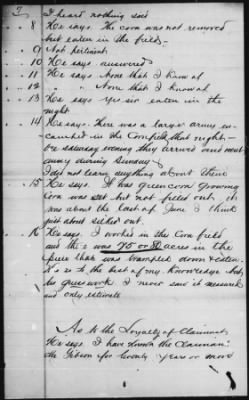 7 I heard nothing said
8 He says. The corn was not removed
but eaten in the field.
9 Not pertinent.
10 He says answered
11 He says None that I know of
12 " None that I know of
13 He says yes sir eaten in the
night.
14 He says. There was a large army en-
camped in the Cornfield that night.
Saturday evening they arrived and went
away during Sunday
I did not learn anything about them
15 He says. It was green corn growing
Corn was set but not filled out. it
was about the last of June I think
just about silked out.
16 He says. I worked in the Corn field
and there was 75 or 80 acres in the
piece that was trampled down & eaten.
to the best of my knowledge but
guess work I never saw it measured
and only estimate
As to the Loyalty of Claimant
He says I have known the Claimant
Gibson for twenty years or more